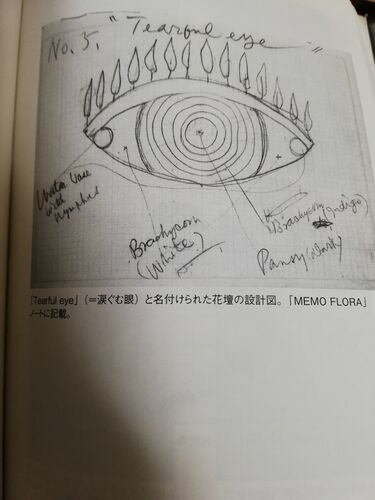 No. 5. "Tearful eye"
Water Vase
with
Nymphea
Brachycom
(White)
Brachycom (Indigo)
Pansy (dark)
「Tearful eye」(＝涙ぐむ眼) と名付けられた花壇の設計図。「MEMO FLORA」
ノートに記載。